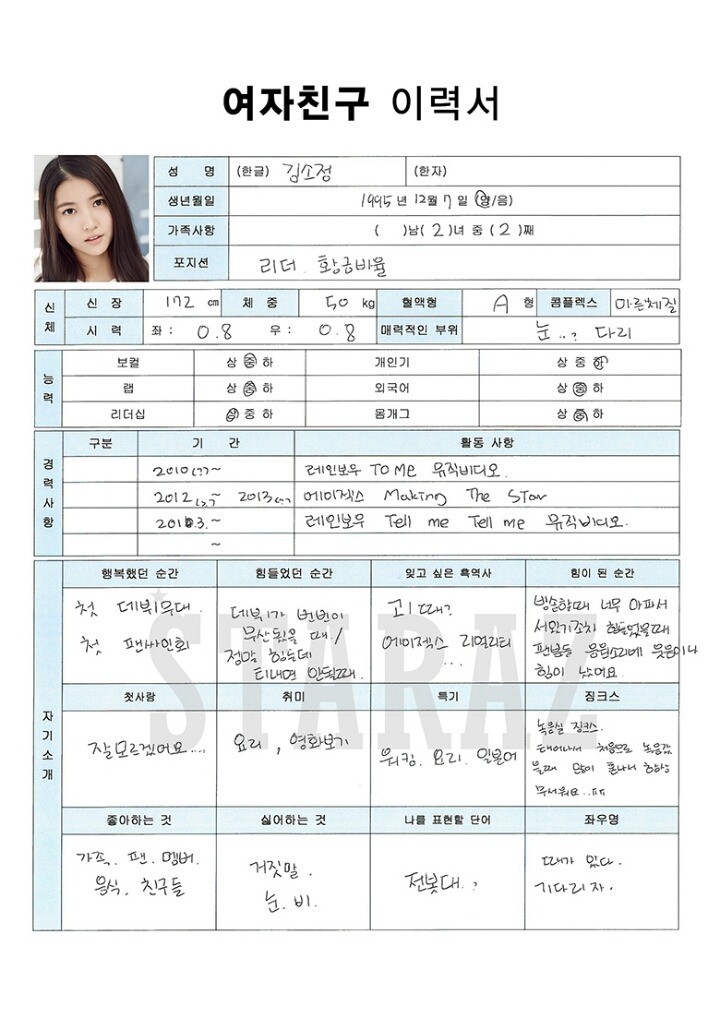 여자친구 이력서
성 명 (한글) 김소정 (한자)
생년월일 1995 년 12월 7 일 (양/음)
가족사항 ( )남( 2 )녀 중 ( 2 )째
포지션 리더. 황금비율
신체
신 장 172 cm 체 중 50 kg 혈액형 A 형 콤플렉스 마른체질
시 력 좌 : 0.8 우 : 0.8 매력적인 부위 눈..? 다리
능력
보컬 상 중 하 개인기 상 중 하
랩 상 중 하 외국어 상 중 하
리더십 상 중 하 몸개그 상 중 하
경력사항
구분 기 간 활동 사항
2010 ~ 레인보우 TO ME 뮤직비디오.
2012 ~ 2013 에이젝스 Making The Star
3. ~ 레인보우 Tell me Tell me 뮤직비디오.
~
자기소개
행복했던 순간 힘들었던 순간 잊고 싶은 흑역사 힘이 된 순간
첫 데뷔무대.
첫 팬싸인회
데뷔가 번번이
무산됐을 때/
정말 힘든데
티내면 안될때.
고1때?
에이젝스 리얼리티
...
방송할때 너무 아파서
서있기조차 힘들었을때
팬분들 응원소리에 웃음이나
힘이 났어요.
첫사랑 취미 특기 징크스
잘모르겠어요....
요리, 영화보기
워킹. 요리. 일본어
녹음실 징크스.
태어나서 처음으로 녹음갔
을때 많이 혼나서 항상
무서워요..ㅠㅠ
좋아하는 것 싫어하는 것 나를 표현할 단어 좌우명
가족. 팬. 멤버.
음식. 친구들
거짓말.
눈. 비.
전봇대.?
때가 있다.
기다리자.
STARAZ